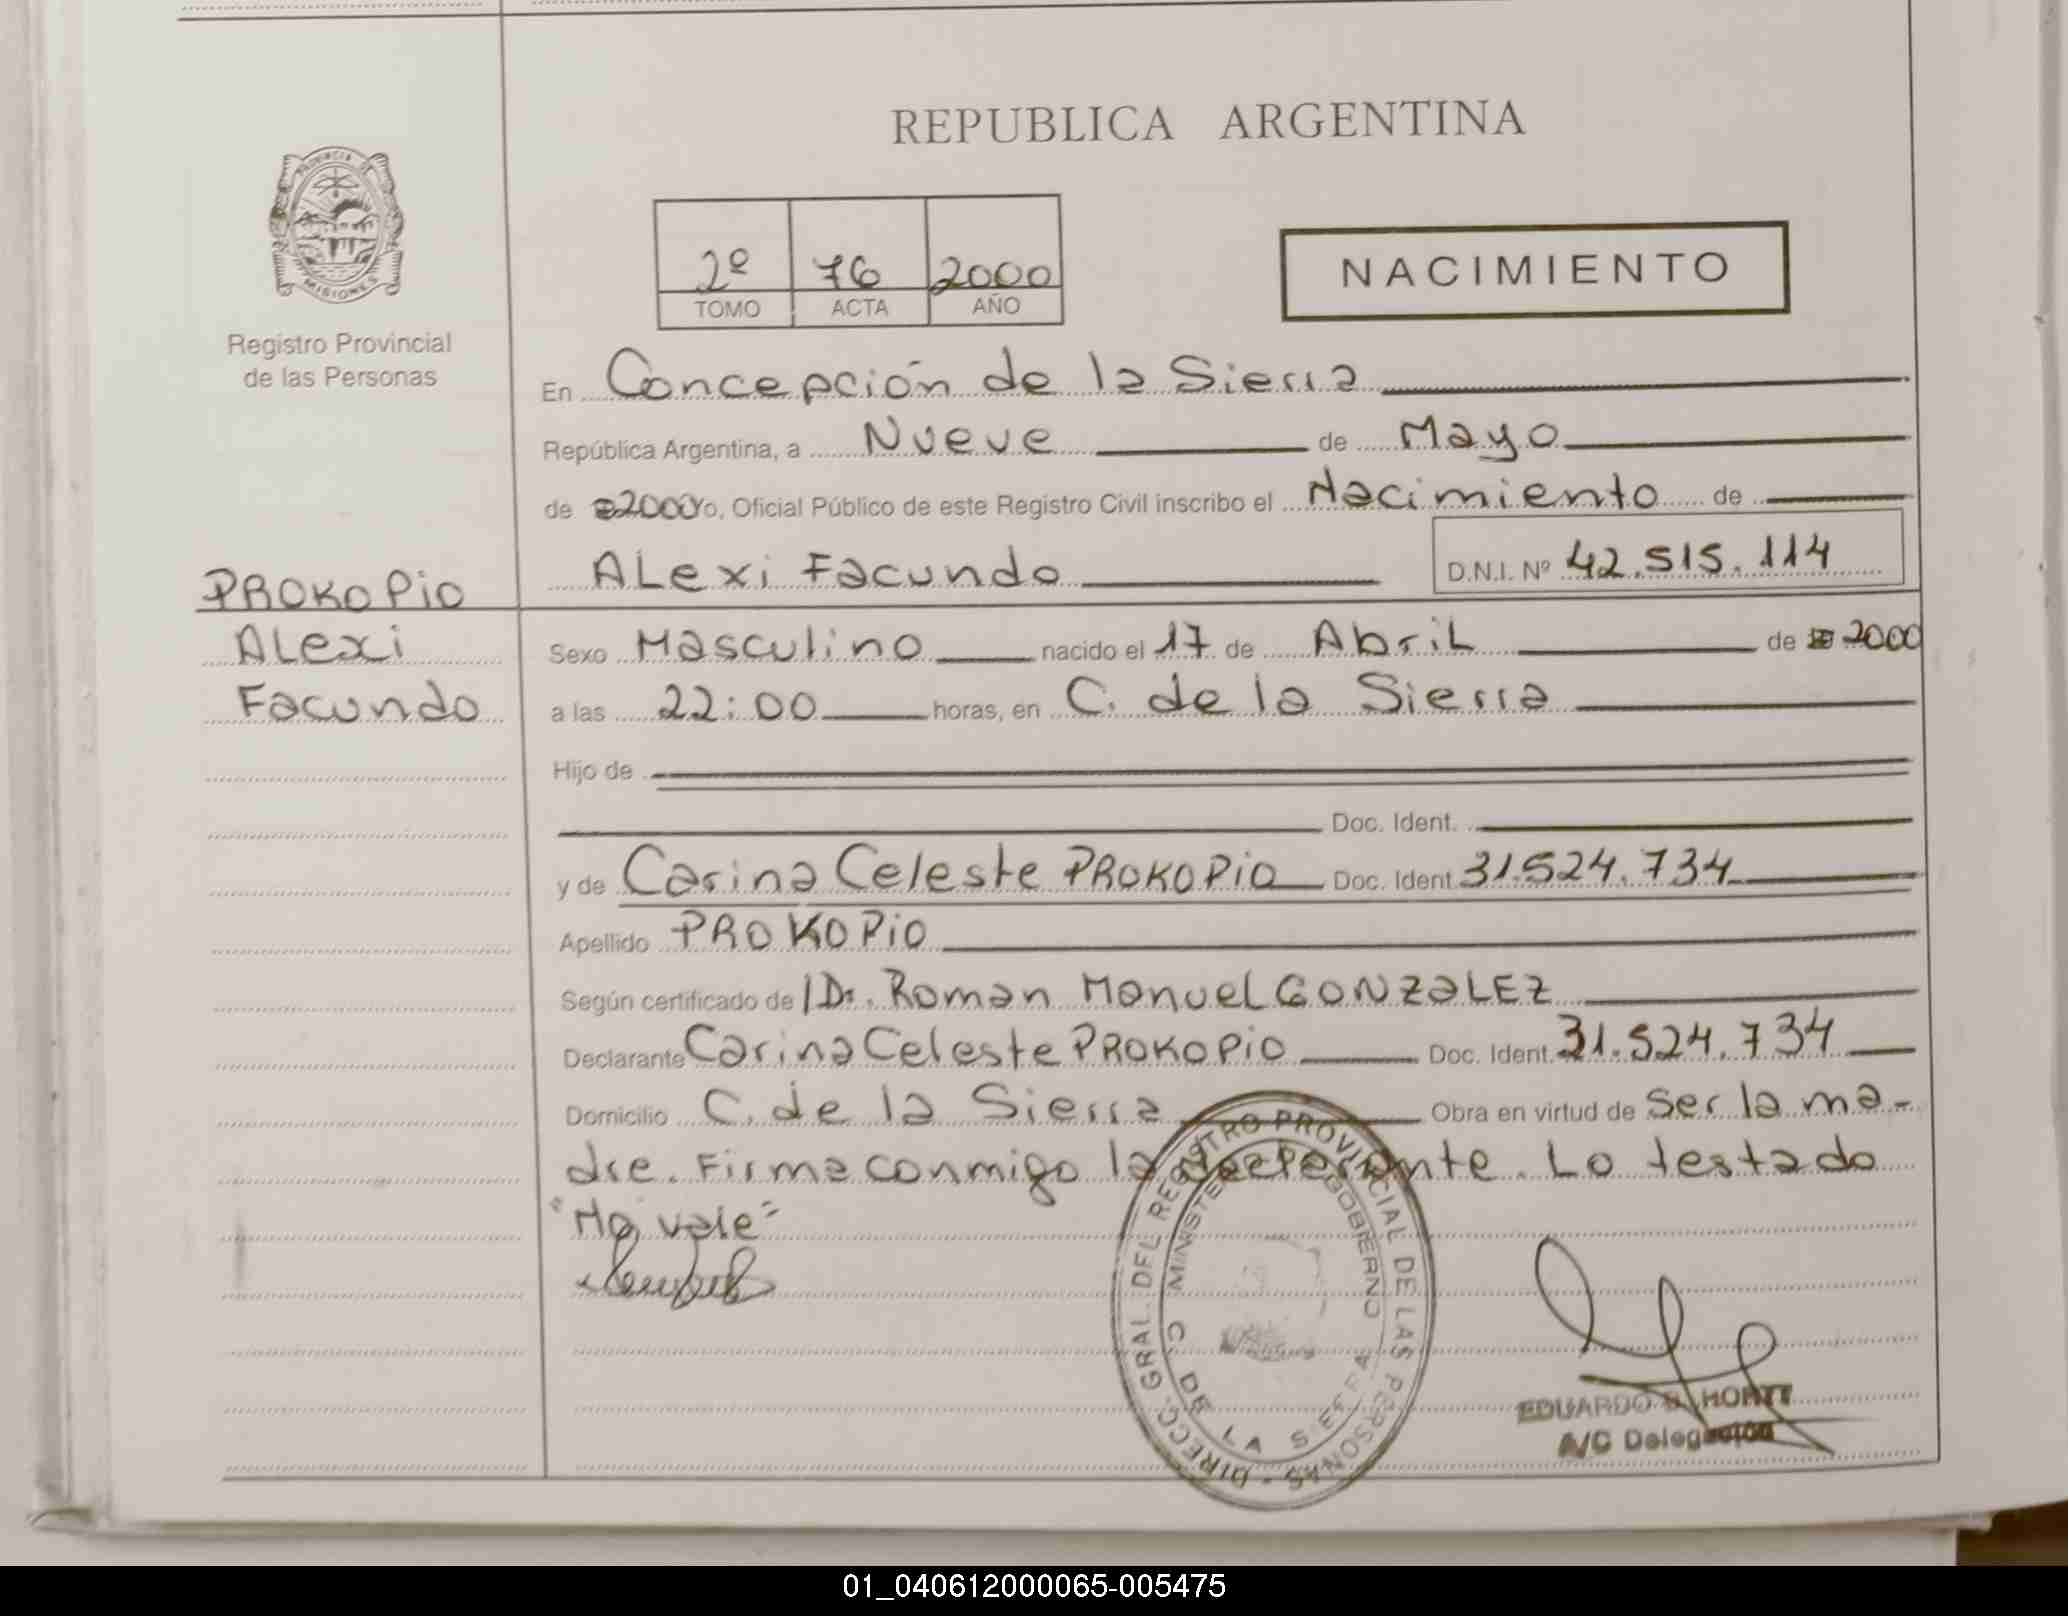 REPUBLICA ARGENTINA
PROVINCIA DE
MISIONES
Registro Provincial
de las Personas
2º 76 2000
TOMO ACTA AÑO
NACIMIENTO
En Concepción de la Sierra
República Argentina, a Nueve de Mayo
de 2000 yo, Oficial Público de este Registro Civil inscribo el Nacimiento de
ALexi Facundo D.N.I. Nº 42.515.114
PROKOPio
ALexi
Facundo
Sexo Masculino nacido el 17 de AbriL de 2000
a las 22:00 horas, en C. de la Sierra
Hijo de
Doc. Ident.
y de Carina Celeste PROKOPio Doc. Ident. 31.524.734
Apellido PROKOPio
Según certificado de Dr. Roman Manuel GONZaLEZ
Declarante Carina Celeste PROKOPio Doc. Ident. 31.524.734
Domicilio C. de la Sierra Obra en virtud de Ser la ma-
dre. Firma conmigo la declarante. Lo testado
"No vale"
DIRECC. GRAL. DEL REGISTRO PROVINCIAL DE LAS PERSONAS -
GOBIERNO
C. DE LA SIERRA
EDUARDO B. HORTT
A/C Delegación
01_040612000065-005475